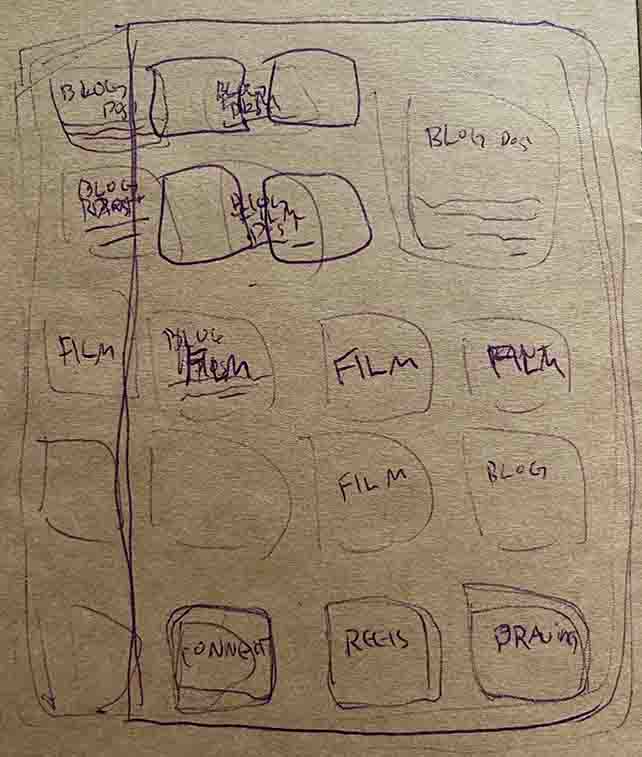 BLOG
POST
BLOG
BLOG POST
BLOG
BLOG
FILM
BLOG
FILM
FILM
FILM
FILM
BLOG
CONNECT
REELS
DRAWING